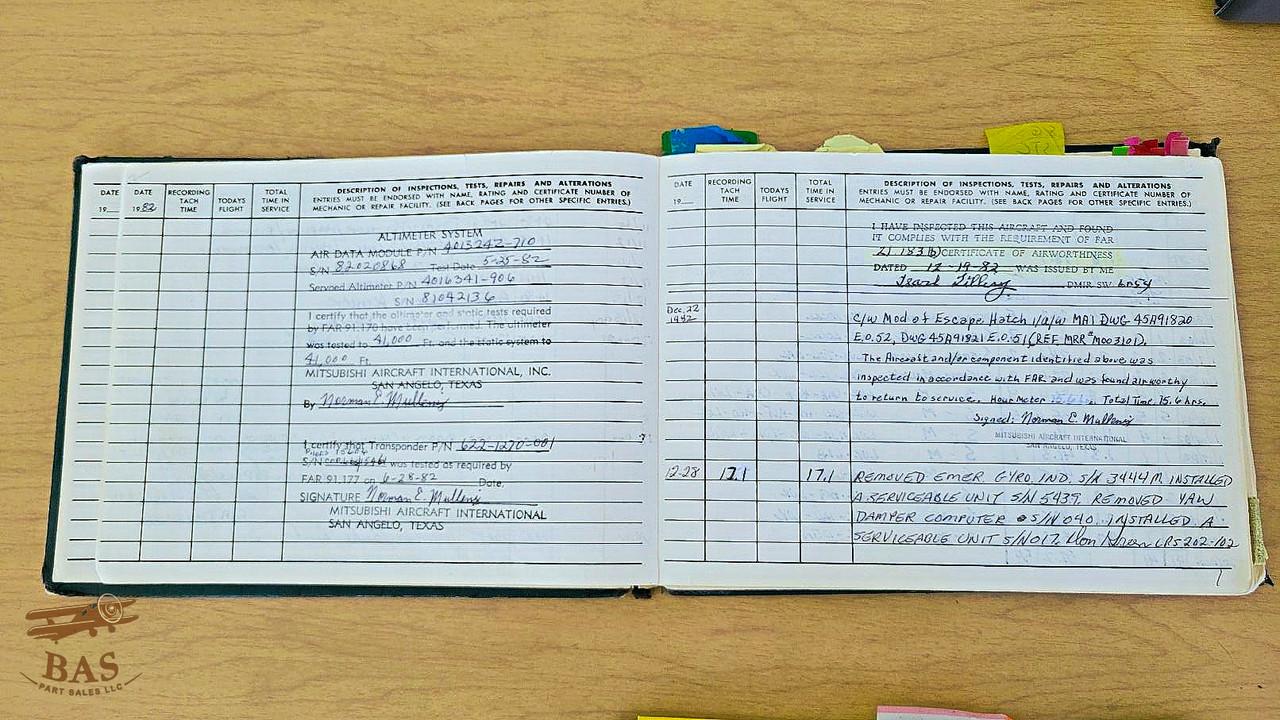 DATE
19__
DATE
1982
RECORDING
TACH
TIME
TODAYS
FLIGHT
TOTAL
TIME IN
SERVICE
DESCRIPTION OF INSPECTIONS, TESTS, REPAIRS AND ALTERATIONS
ENTRIES MUST BE ENDORSED WITH NAME, RATING AND CERTIFICATE NUMBER OF
MECHANIC OR REPAIR FACILITY. (SEE BACK PAGES FOR OTHER SPECIFIC ENTRIES.)
ALTIMETER SYSTEM
AIR DATA MODULE P/N 4013242-710
S/N 82020868 Test Date 5-25-82
Servoed Altimeter P/N 4016341-906
S/N 81042136
I certify that the altimeter and static tests required
by FAR 91.170 have been performed. The altimeter
was tested to 41,000 Ft. and the static system to
41,000 Ft.
MITSUBISHI AIRCRAFT INTERNATIONAL, INC.
SAN ANGELO, TEXAS
By Norman E. Mullenix
I certify that Transponder P/N 622-1270-001
S/N was tested as required by
FAR 91.177 on 6-28-82 Date,
SIGNATURE Norman E. Mullenix
MITSUBISHI AIRCRAFT INTERNATIONAL
SAN ANGELO, TEXAS
DATE
19__
RECORDING
TACH
TIME
TODAYS
FLIGHT
TOTAL
TIME IN
SERVICE
DESCRIPTION OF INSPECTIONS, TESTS, REPAIRS AND ALTERATIONS
ENTRIES MUST BE ENDORSED WITH NAME, RATING AND CERTIFICATE NUMBER OF
MECHANIC OR REPAIR FACILITY. (SEE BACK PAGES FOR OTHER SPECIFIC ENTRIES.)
I HAVE INSPECTED THIS AIRCRAFT AND FOUND
IT COMPLIES WITH THE REQUIREMENT OF FAR
21.183(b) CERTIFICATE OF AIRWORTHINESS
DATED 12-19-82 WAS ISSUED BY ME
DMIR SW
Dec. 22
1982
C/W Mod of Escape Hatch i/a/w MAI DWG 45A91820
E.O.52, DWG 45A91821 E.O.51 (REF MRR #M003101).
The Aircraft and/or component identified above was
inspected in accordance with FAR and was found airworthy
to return to service. Hour Meter Total Time 15.6 hrs.
Signed: Norman E. Mullenix
MITSUBISHI AIRCRAFT INTERNATIONAL
SAN ANGELO, TEXAS
12-28 17.1 17.1 REMOVED EMER. GYRO. IND. S/N 3444M INSTALLED
A SERVICEABLE UNIT S/N 5439. REMOVED YAW
DAMPER COMPUTER S/N 040. INSTALLED A
SERVICEABLE UNIT S/N 017. CRS 202-102
BAS
PART SALES LLC